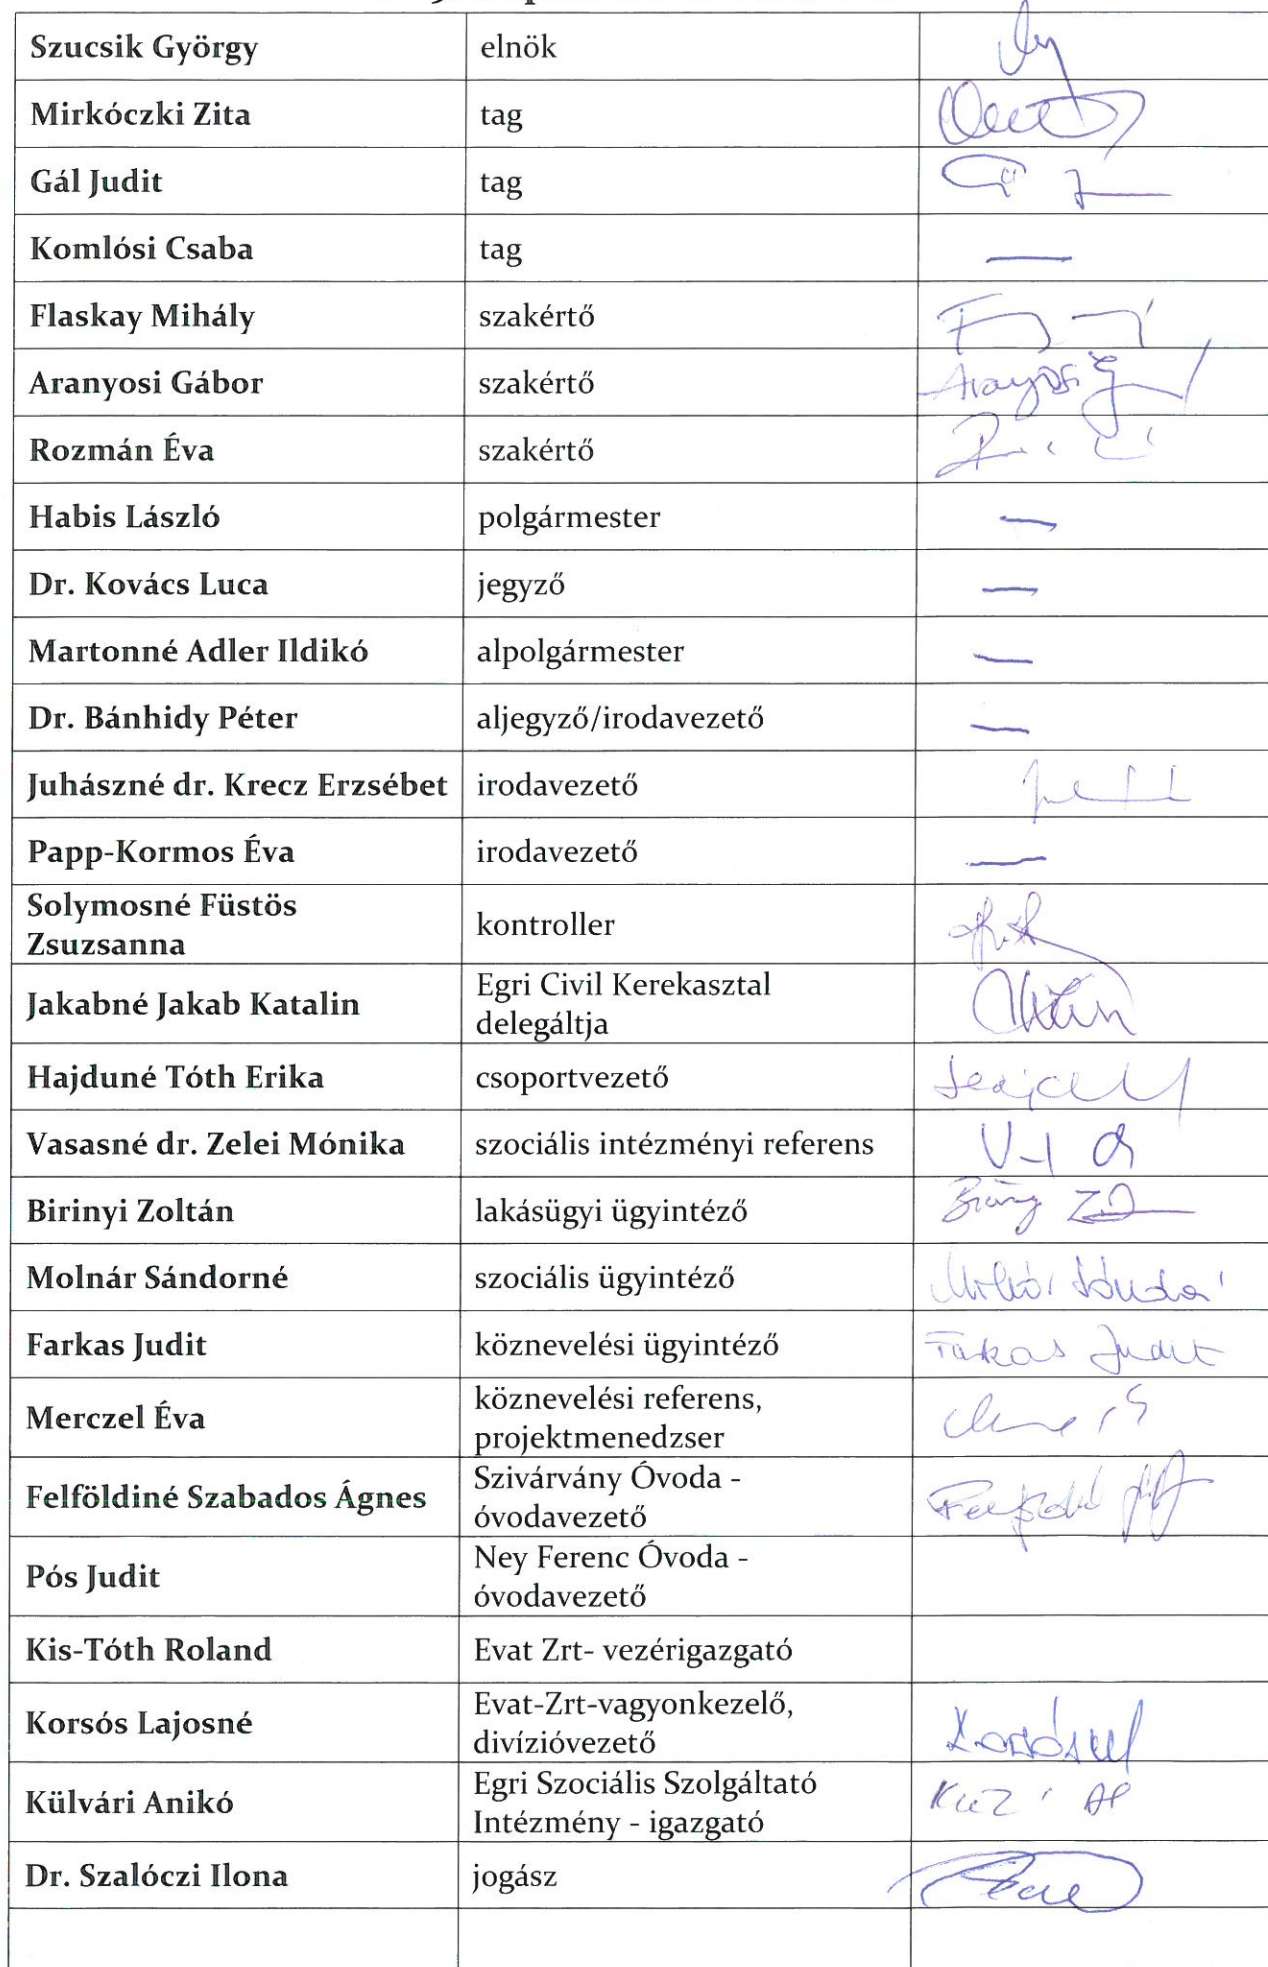 Szucsik György elnök
Mirkóczki Zita tag
Gál Judit tag
Komlósi Csaba tag
Flaskay Mihály szakértő
Aranyosi Gábor szakértő
Rozmán Éva szakértő
Habis László polgármester
Dr. Kovács Luca jegyző
Martonné Adler Ildikó alpolgármester
Dr. Bánhidy Péter aljegyző/irodavezető
Juhászné dr. Krecz Erzsébet irodavezető
Papp-Kormos Éva irodavezető
Solymosné Füstös
Zsuzsanna
kontroller
Jakabné Jakab Katalin
Egri Civil Kerekasztal
delegáltja
Hajduné Tóth Erika csoportvezető
Vasasné dr. Zelei Mónika szociális intézményi referens
Birinyi Zoltán lakásügyi ügyintéző
Molnár Sándorné szociális ügyintéző
Farkas Judit köznevelési ügyintéző Farkas Judit
Merczel Éva
köznevelési referens,
projektmenedzser
Felföldiné Szabados Ágnes
Szivárvány Óvoda -
óvodavezető
Pós Judit
Ney Ferenc Óvoda -
óvodavezető
Kis-Tóth Roland Evat Zrt- vezérigazgató
Korsós Lajosné
Evat-Zrt-vagyonkezelő,
divízióvezető
Külvári Anikó
Egri Szociális Szolgáltató
Intézmény - igazgató
Dr. Szalóczi Ilona jogász